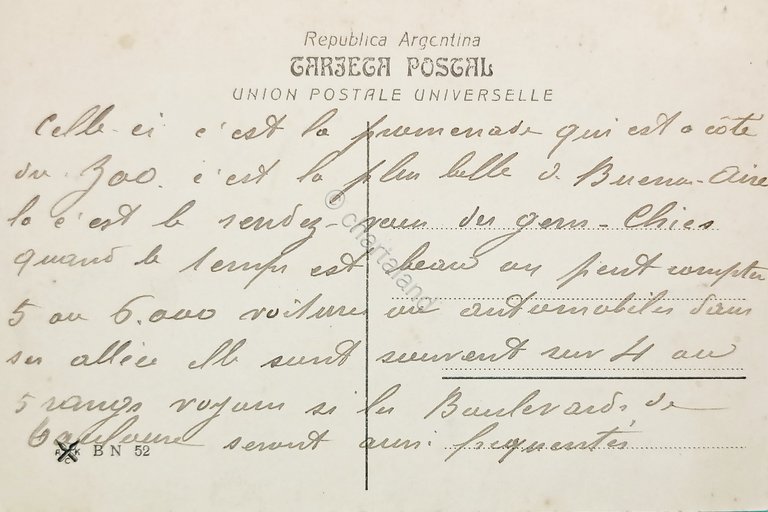 Republica Argentina
TARJETA POSTAL
UNION POSTALE UNIVERSELLE
Celle-ci c'est la promenade qui est a côté
du Zoo. c'est la plus belle de Buenos-Aires
la c'est le rendez-vous des gens-Chics
quand le temps est beau on peut compter
5 ou 6.000 voitures ou automobiles dans
ses allées elle sont souvent sur 4 ou
5 rangs voyons si les Boulevards de
Toulouse seront aussi frequentés
BN 52
© chartaland